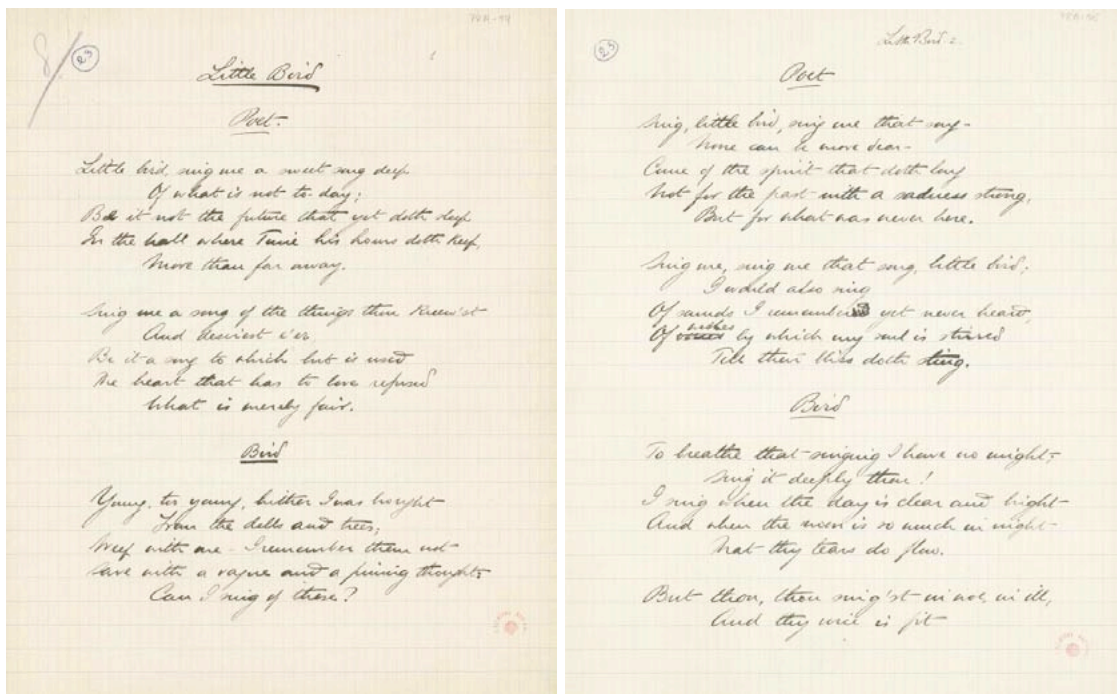 8/
23
Little Bird
Poet.
Little bird, sing me a sweet song deep
Of what is not to-day;
Be it not the future that yet doth sleep
In the hall where Time his hours doth keep,
More than far away.
Sing me a song of the things thou knew'st
And desirest e'er,
Be it a song to which but is used
The heart that has to love refused
What is merely fair.
Bird
Young, too young, hither I was brought
From the dells and trees;
Weep with me - I remember them not
Save with a vague and a pining thought:
Can I sing of these?
23
Little Bird. 2.
Poet
Sing, little bird, sing me that song -
None can be more dear -
Came of the spirit that doth long
Not for the past with a sadness strong,
But for what was never here.
Sing me, sing me that song, little bird;
I would also sing
Of sounds I remember yet never heard,
Of wishes by which my soul is stirred
Till their bliss doth sting.
Bird
To breathe that singing I have no might;
Sing it deeply thou!
I sing when the day is clear and bright
And when the moon is so much in night
That thy tears do flow.
But thou, thou sing'st in woe, in ill,
And thy voice is fit